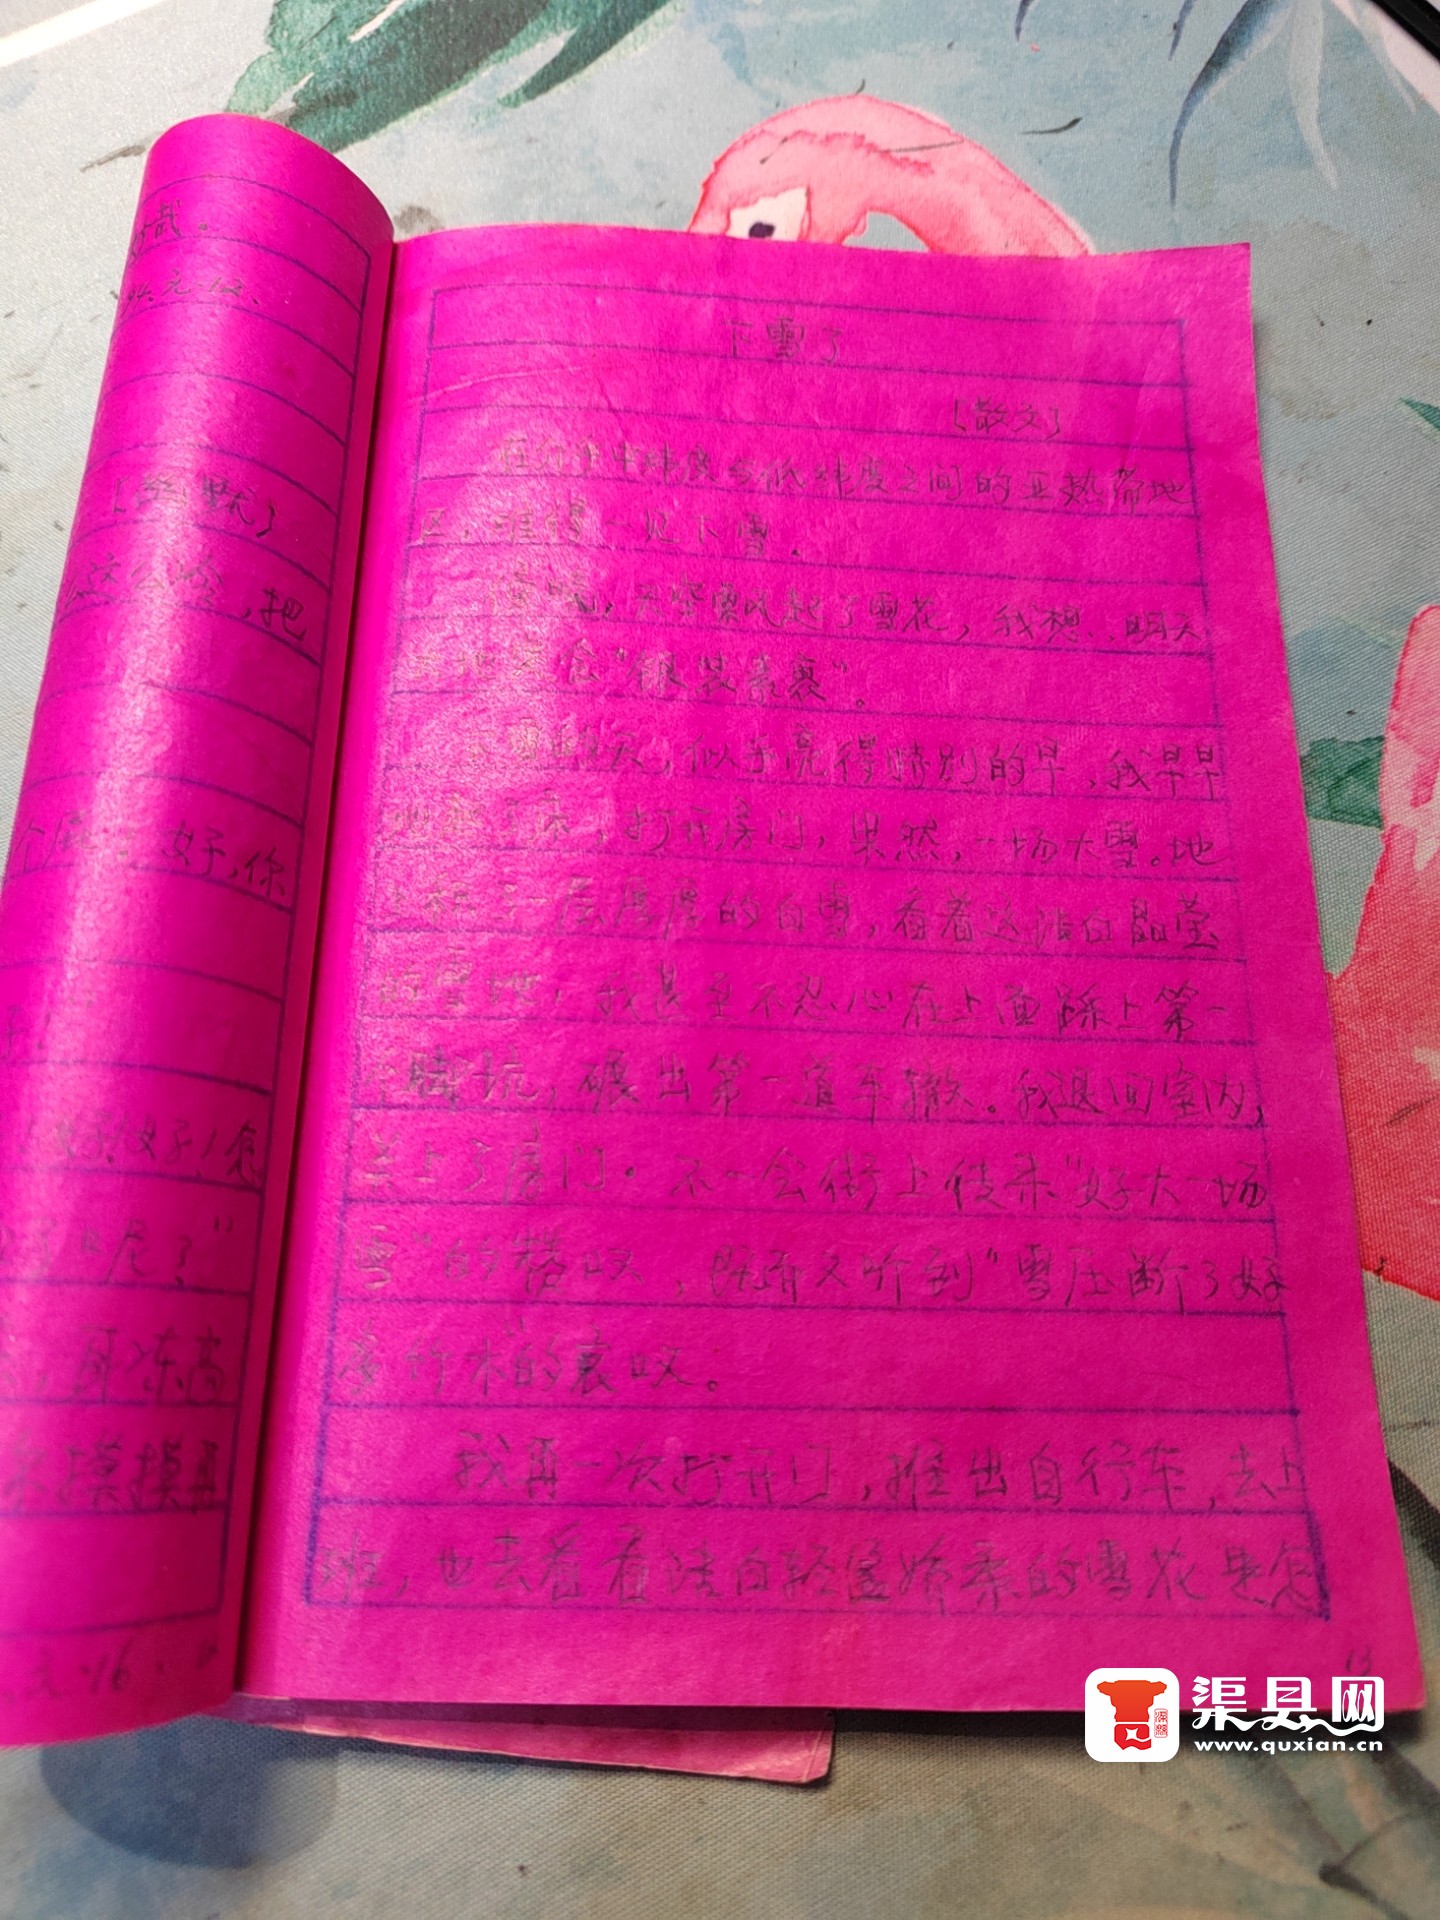 武。
94.元.12.
[幽默]
这么冷,把
个
好,你
子!
好,好!您
了"呢了"
,耳冻尚
来摸摸再
元.16.
下雪了
[散文]
在介于中纬度与低纬度之间的亚热带地
区,难得一见下雪。
傍晚,天空飘起了雪花,我想,明天
会"银装素裹"。
天,似乎亮得特别的早,我早早
地起了床,打开房门,果然,一场大雪。地
上积了一层厚厚的白雪,看着这洁白晶莹
的雪地,我甚至不忍心在上面踩上第一
个脚坑,碾出第一道车辙。我退回室内,
关上了房门。不一会街上传来"好大一场
雪"的赞叹,既而又听到"雪压断了好
多竹木的哀叹。
我再一次打开门,推出自行车,去上
班,也去看看洁白轻盈娇柔的雪花是怎
13
渠县网
www.quxian.cn